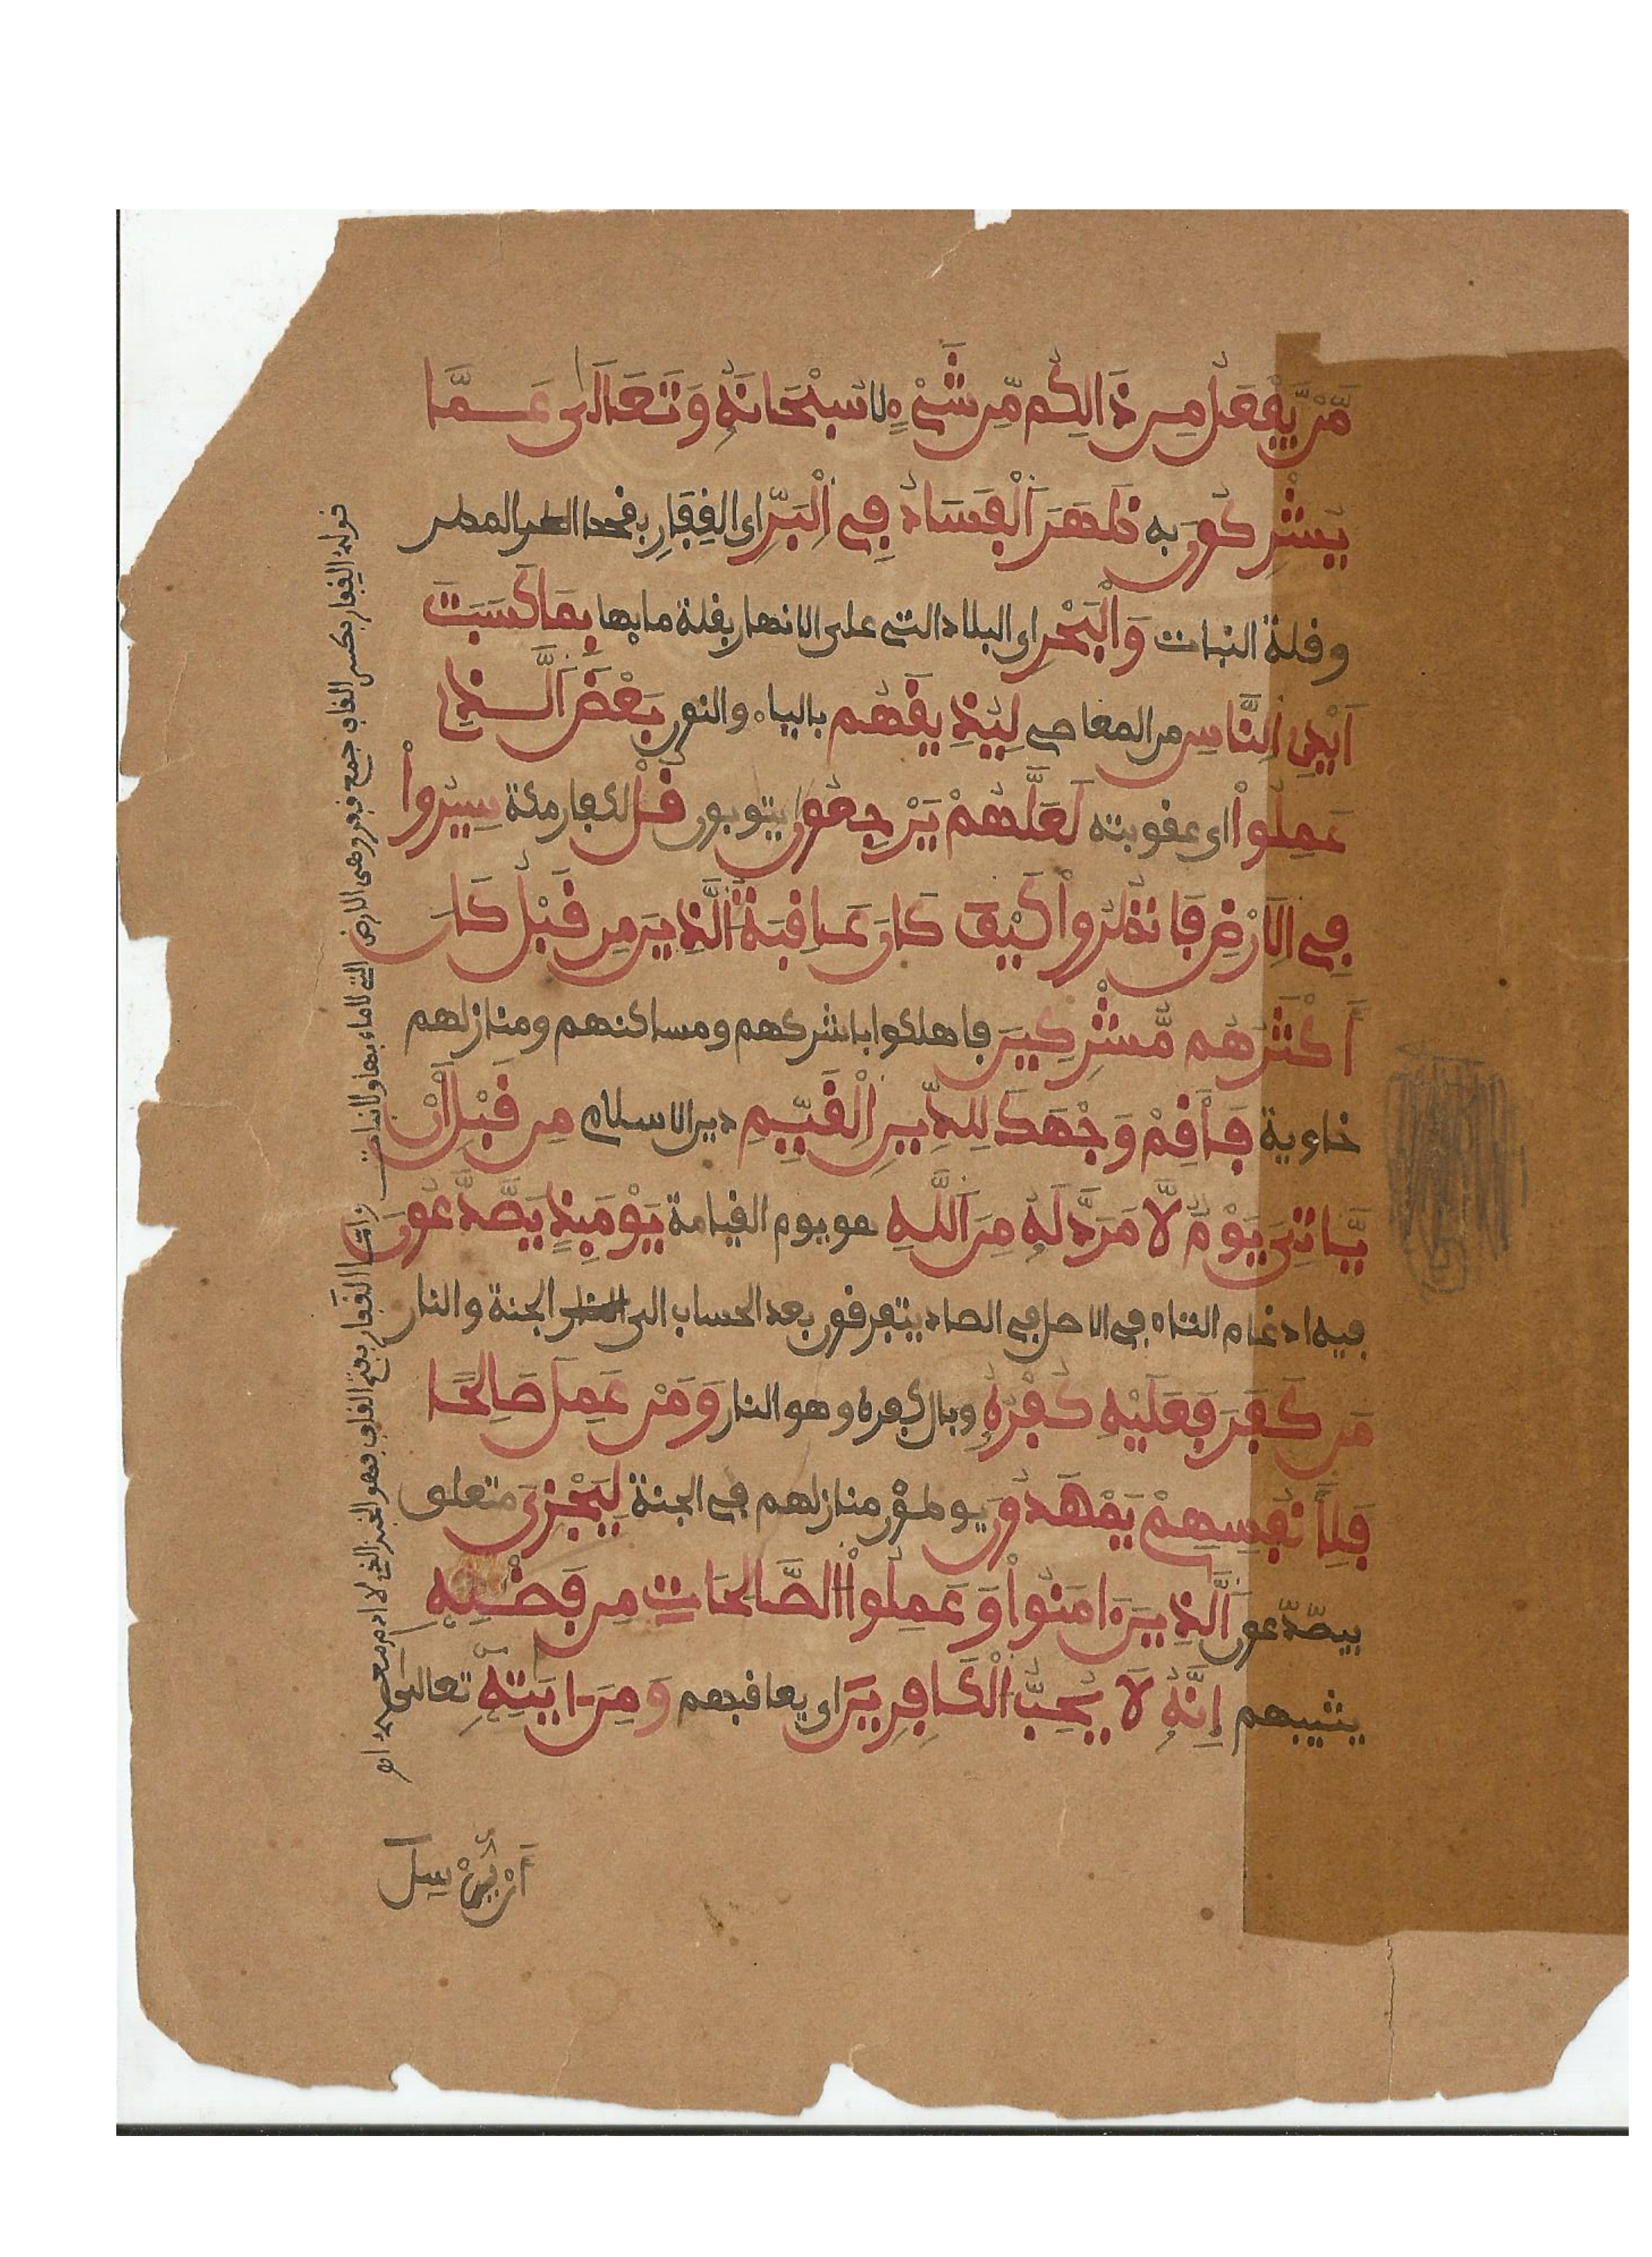 مَّنْ يَّفْعَلُ مِن ذَالِكُم مِّن شَيْءٍ لا سُبْحَانَهُ وَتَعَالَىٰ عَمَّا
يُشْرِكُونَ به ظَهَرَ الْفَسَادُ فِي الْبَرِّ اى الفِقَارِ بقحط المطر
وقلة النبات وَالْبَحْرِ اى البلاد التى على الانهار بقلة مايها بِمَا كَسَبَتْ
اَيْدِى النَّاسِ من المعاصى لِيُذِيقَهُم بالياء والنون بَعْضَ الَّذِى
عَمِلُواْ اى عقوبته لَعَلَّهُمْ يَرْجِعُونَ يتوبون قُلْ لكفار مكة سِيرُواْ
فِى الاَرْضِ فَانظُرُواْ كَيْفَ كَانَ عَاقِبَةُ الَّذِينَ مِن قَبْلُ كَانَ
اَكْثَرُهُم مُّشْرِكِينَ فاهلكوا باشركهم ومساكنهم ومنازلهم
خاوية فَأَقِمْ وَجْهَكَ لِلدِّينِ الْقَيِّمِ دين الاسلام مِن قَبْلِ أَنْ
يَّاتِىَ يَوْمٌ لَّا مَرَدَّ لَهُ مِنَ اللَّهِ هو يوم القيامة يَوْمَئِذٍ يَصَّدَّعُونَ
فيه ادغام التاء فى الاصل فى الصاد يتفرقون بعد الحساب الى الجنة والنار
مَن كَفَرَ فَعَلَيْهِ كُفْرُهُ وبال كفره وهو النار وَمَنْ عَمِلَ صَالِحًا
فَلِأَنفُسِهِمْ يَمْهَدُونَ يوطئون منازلهم فى الجنة لِيَجْزِىَ متعلق
بيصّدّعون الَّذِينَ ءَامَنُواْ وَعَمِلُواْ الصَّالِحَاتِ مِن فَضْلِهِ
يثيبهم إِنَّهُ لَا يُحِبُّ الْكَافِرِينَ اى يعاقبهم وَمِنَ ايَتِهِ تعالى
اَنْ يُّرْسِلَ
قوله الفقار بكسر القاف جمع فقر وهى الارض التى لاماء بها ولانبات
القفار بفتح القاف فهو الخبز الذى لا ادم معه اه